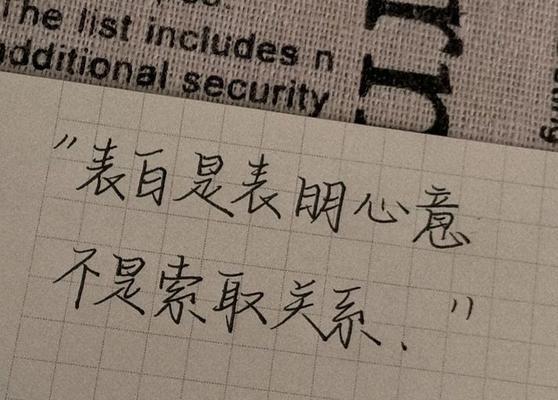 The list includes n
additional security
"表白是表明心意
不是索取关系."